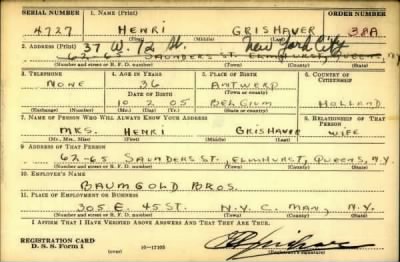 SERIAL NUMBER 1. NAME (Print) ORDER NUMBER
4727 HENRI GRISHAVER 38A
(First) (Middle) (Last)
37 W. 72 St. New York City
2. ADDRESS (Print)
62-65 SAUNDERS ST. ELMHURST, QUEENS, NY
(Number and street or R. F. D. number) (Town) (County) (State)
3. TELEPHONE 4. AGE IN YEARS 5. PLACE OF BIRTH 6. COUNTRY OF CITIZENSHIP
NONE 36 ANTWERP
DATE OF BIRTH (Town or county)
10 2 05 BELGIUM HOLLAND
(Exchange) (Number) (Mo.) (Day) (Yr.) (State or country)
7. NAME OF PERSON WHO WILL ALWAYS KNOW YOUR ADDRESS 8. RELATIONSHIP OF THAT PERSON
MRS. HENRI GRISHAVER WIFE
(Mr., Mrs., Miss) (First) (Middle) (Last)
9. ADDRESS OF THAT PERSON
62-65 SAUNDERS ST. ELMHURST, QUEENS, N.Y.
(Number and street or R. F. D. number) (Town) (County) (State)
10. EMPLOYER'S NAME
BAUMGOLD BROS.
11. PLACE OF EMPLOYMENT OR BUSINESS
305 E. 45 ST. N.Y.C. MAN, N.Y.
(Number and street or R. F. D. number) (Town) (County) (State)
I AFFIRM THAT I HAVE VERIFIED ABOVE ANSWERS AND THAT THEY ARE TRUE.
REGISTRATION CARD
D. S. S. Form 1 (over) 16-17105